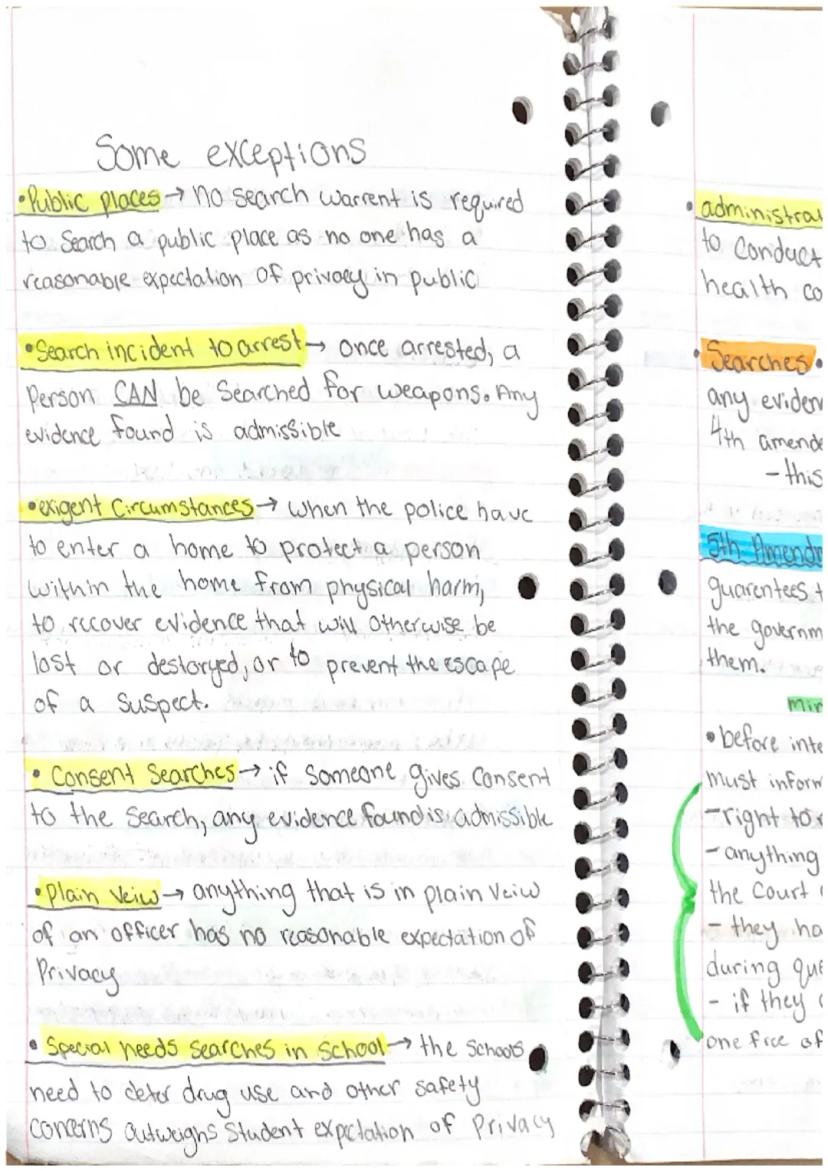 Some exceptions
•Public places → No search warrent is required
to search a public place as no one has a
reasonable expectation of privacy in public
•Search incident to arrest → once arrested, a
person CAN be searched for weapons. Any
evidence found is admissible
•exigent circumstances → when the police have
to enter a home to protect a person
within the home from physical harm,
to recover evidence that will otherwise be
lost or destoryed, or to prevent the escape
of a suspect.
• Consent Searches → if someone gives consent
to the search, any evidence found is admissible
•Plain Veiw → anything that is in plain veiw
of an officer has no reasonable expectation of
Privacy
• Special needs searches in School → the schools
need to deter drug use and other safety
concerns outweighs student expctation of Privacy
•
to conduct
health co
•Searches•
any eviden
4th amende
- this
5th Amendm
guarentees t
the governm
them.
mir
•before inte
must inform
-right to
-anything
the court
- they ha
during que
- if they
one free of